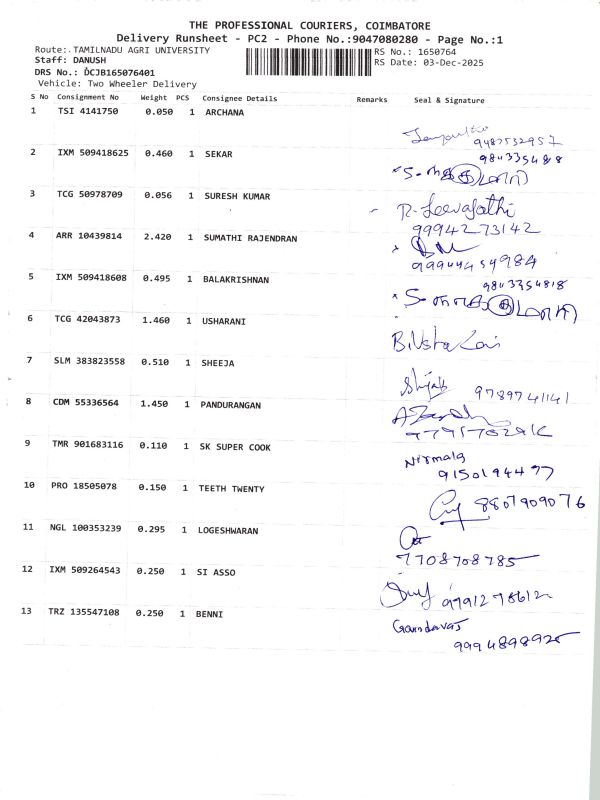 THE PROFESSIONAL COURIERS, COIMBATORE
Delivery Runsheet - PC2 - Phone No.:9047080280 - Page No.:1
Route:.TAMILNADU AGRI UNIVERSITY
RS No.: 1650764
Staff: DANUSH
RS Date: 03-Dec-2025
DRS No.: DCJB165076401
Vehicle: Two Wheeler Delivery
S No Consignment No Weight PCS Consignee Details Remarks Seal & Signature
1 TSI 4141750 0.050 1 ARCHANA
9487532957
2 IXM 509418625 0.460 1 SEKAR
9843354818
3 TCG 50978709 0.056 1 SURESH KUMAR
R. Jeevajothi
9994273142
4 ARR 10439814 2.420 1 SUMATHI RAJENDRAN
9994454984
5 IXM 509418608 0.495 1 BALAKRISHNAN
9843354818
6 TCG 42043873 1.460 1 USHARANI
B. Usha Rani
7 SLM 383823558 0.510 1 SHEEJA
9789741141
8 CDM 55336564 1.450 1 PANDURANGAN
9 TMR 901683116 0.110 1 SK SUPER COOK
Nirmala
9150194477
10 PRO 18505078 0.150 1 TEETH TWENTY
8807909076
11 NGL 100353239 0.295 1 LOGESHWARAN
7708708785
12 IXM 509264543 0.250 1 SI ASSO
9791278612
13 TRZ 135547108 0.250 1 BENNI
9994898925